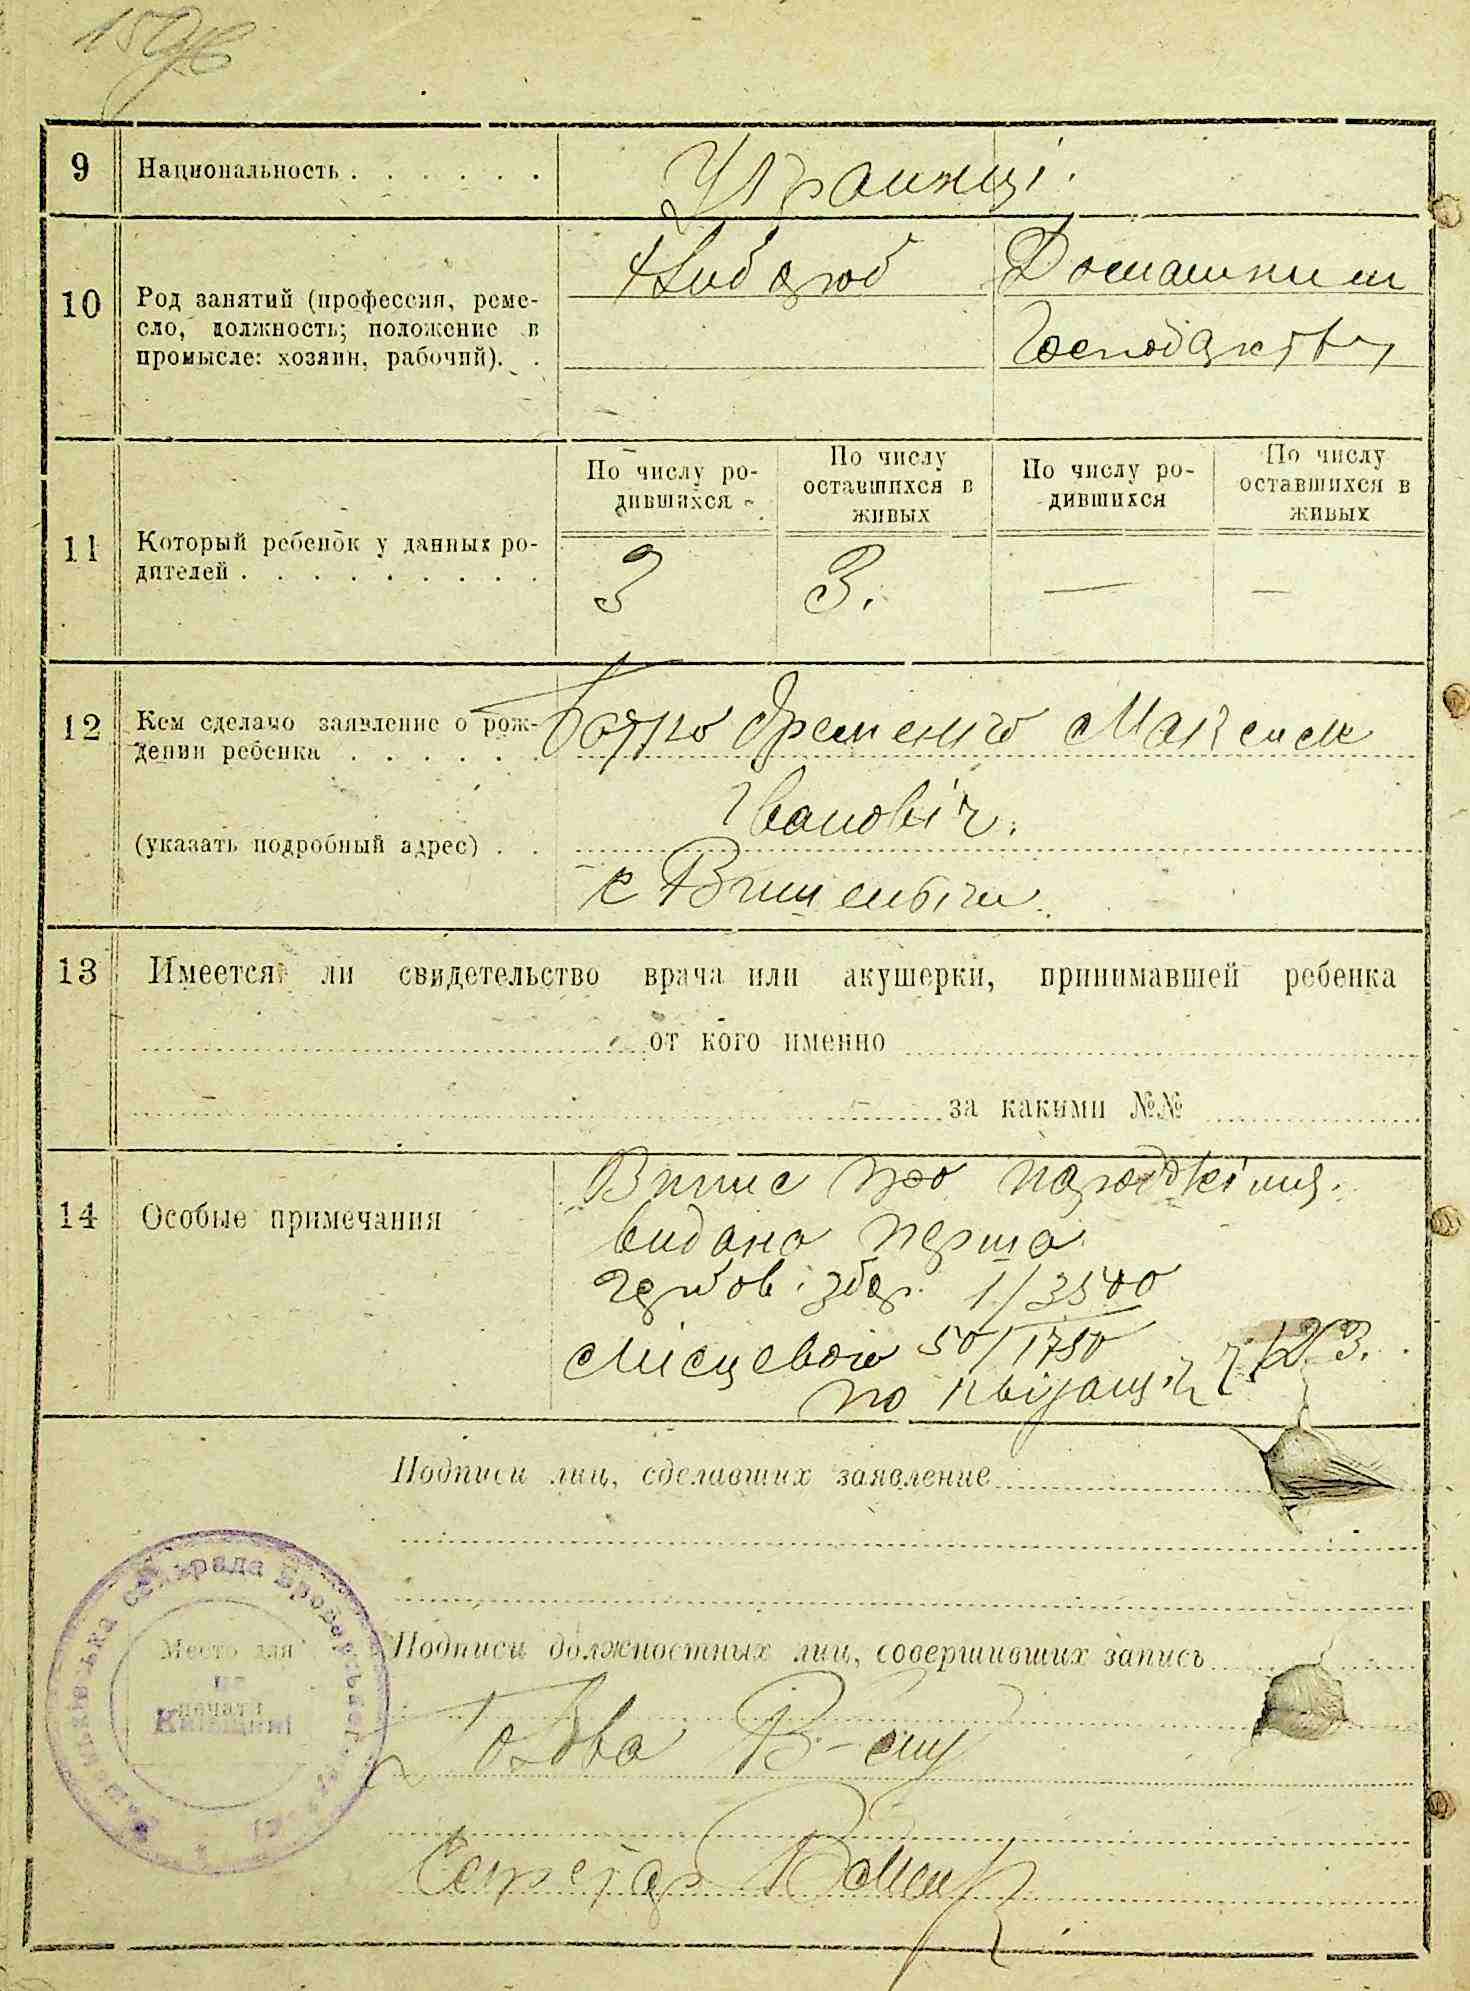 9 Национальность . . . . . . Українці.
10 Род занятий (профессия, реме-
сло, должность; положение в
промысле: хозяин, рабочий). .
Хлібороб
Домашнім
Господарств
11 Который ребенок у данных ро-
дителей . . . . . . . . .
По числу ро-
дившихся
По числу
оставшихся в
живых
По числу ро-
дившихся
По числу
оставшихся в
живых
3 3. — —
12 Кем сделано заявление о рож-
дении ребенка . . . . . .
Батько Яременко Максим
Івановіч.
(указать подробный адрес) . .
с Вишеньки
13 Имеется ли свидетельство врача или акушерки, принимавшей ребенка
от кого именно
за какими №№
14 Особые примечания
Випис про народженія.
видана перша
гербов. збор. 1/3500
Місцевого 50/1750
по квітанц. ч 123.
Подписи лиц, сделавших заявление
Подписи должностных лиц, совершивших запись
Место для
печати
на
Київщині
сільрада
Голова
Секретар